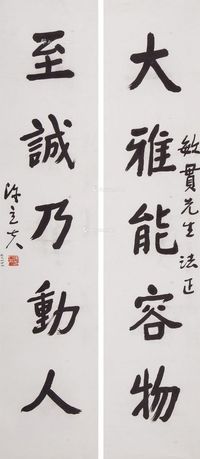 大雅能容物
敏貫先生法正
至誠乃動人
陳立夫